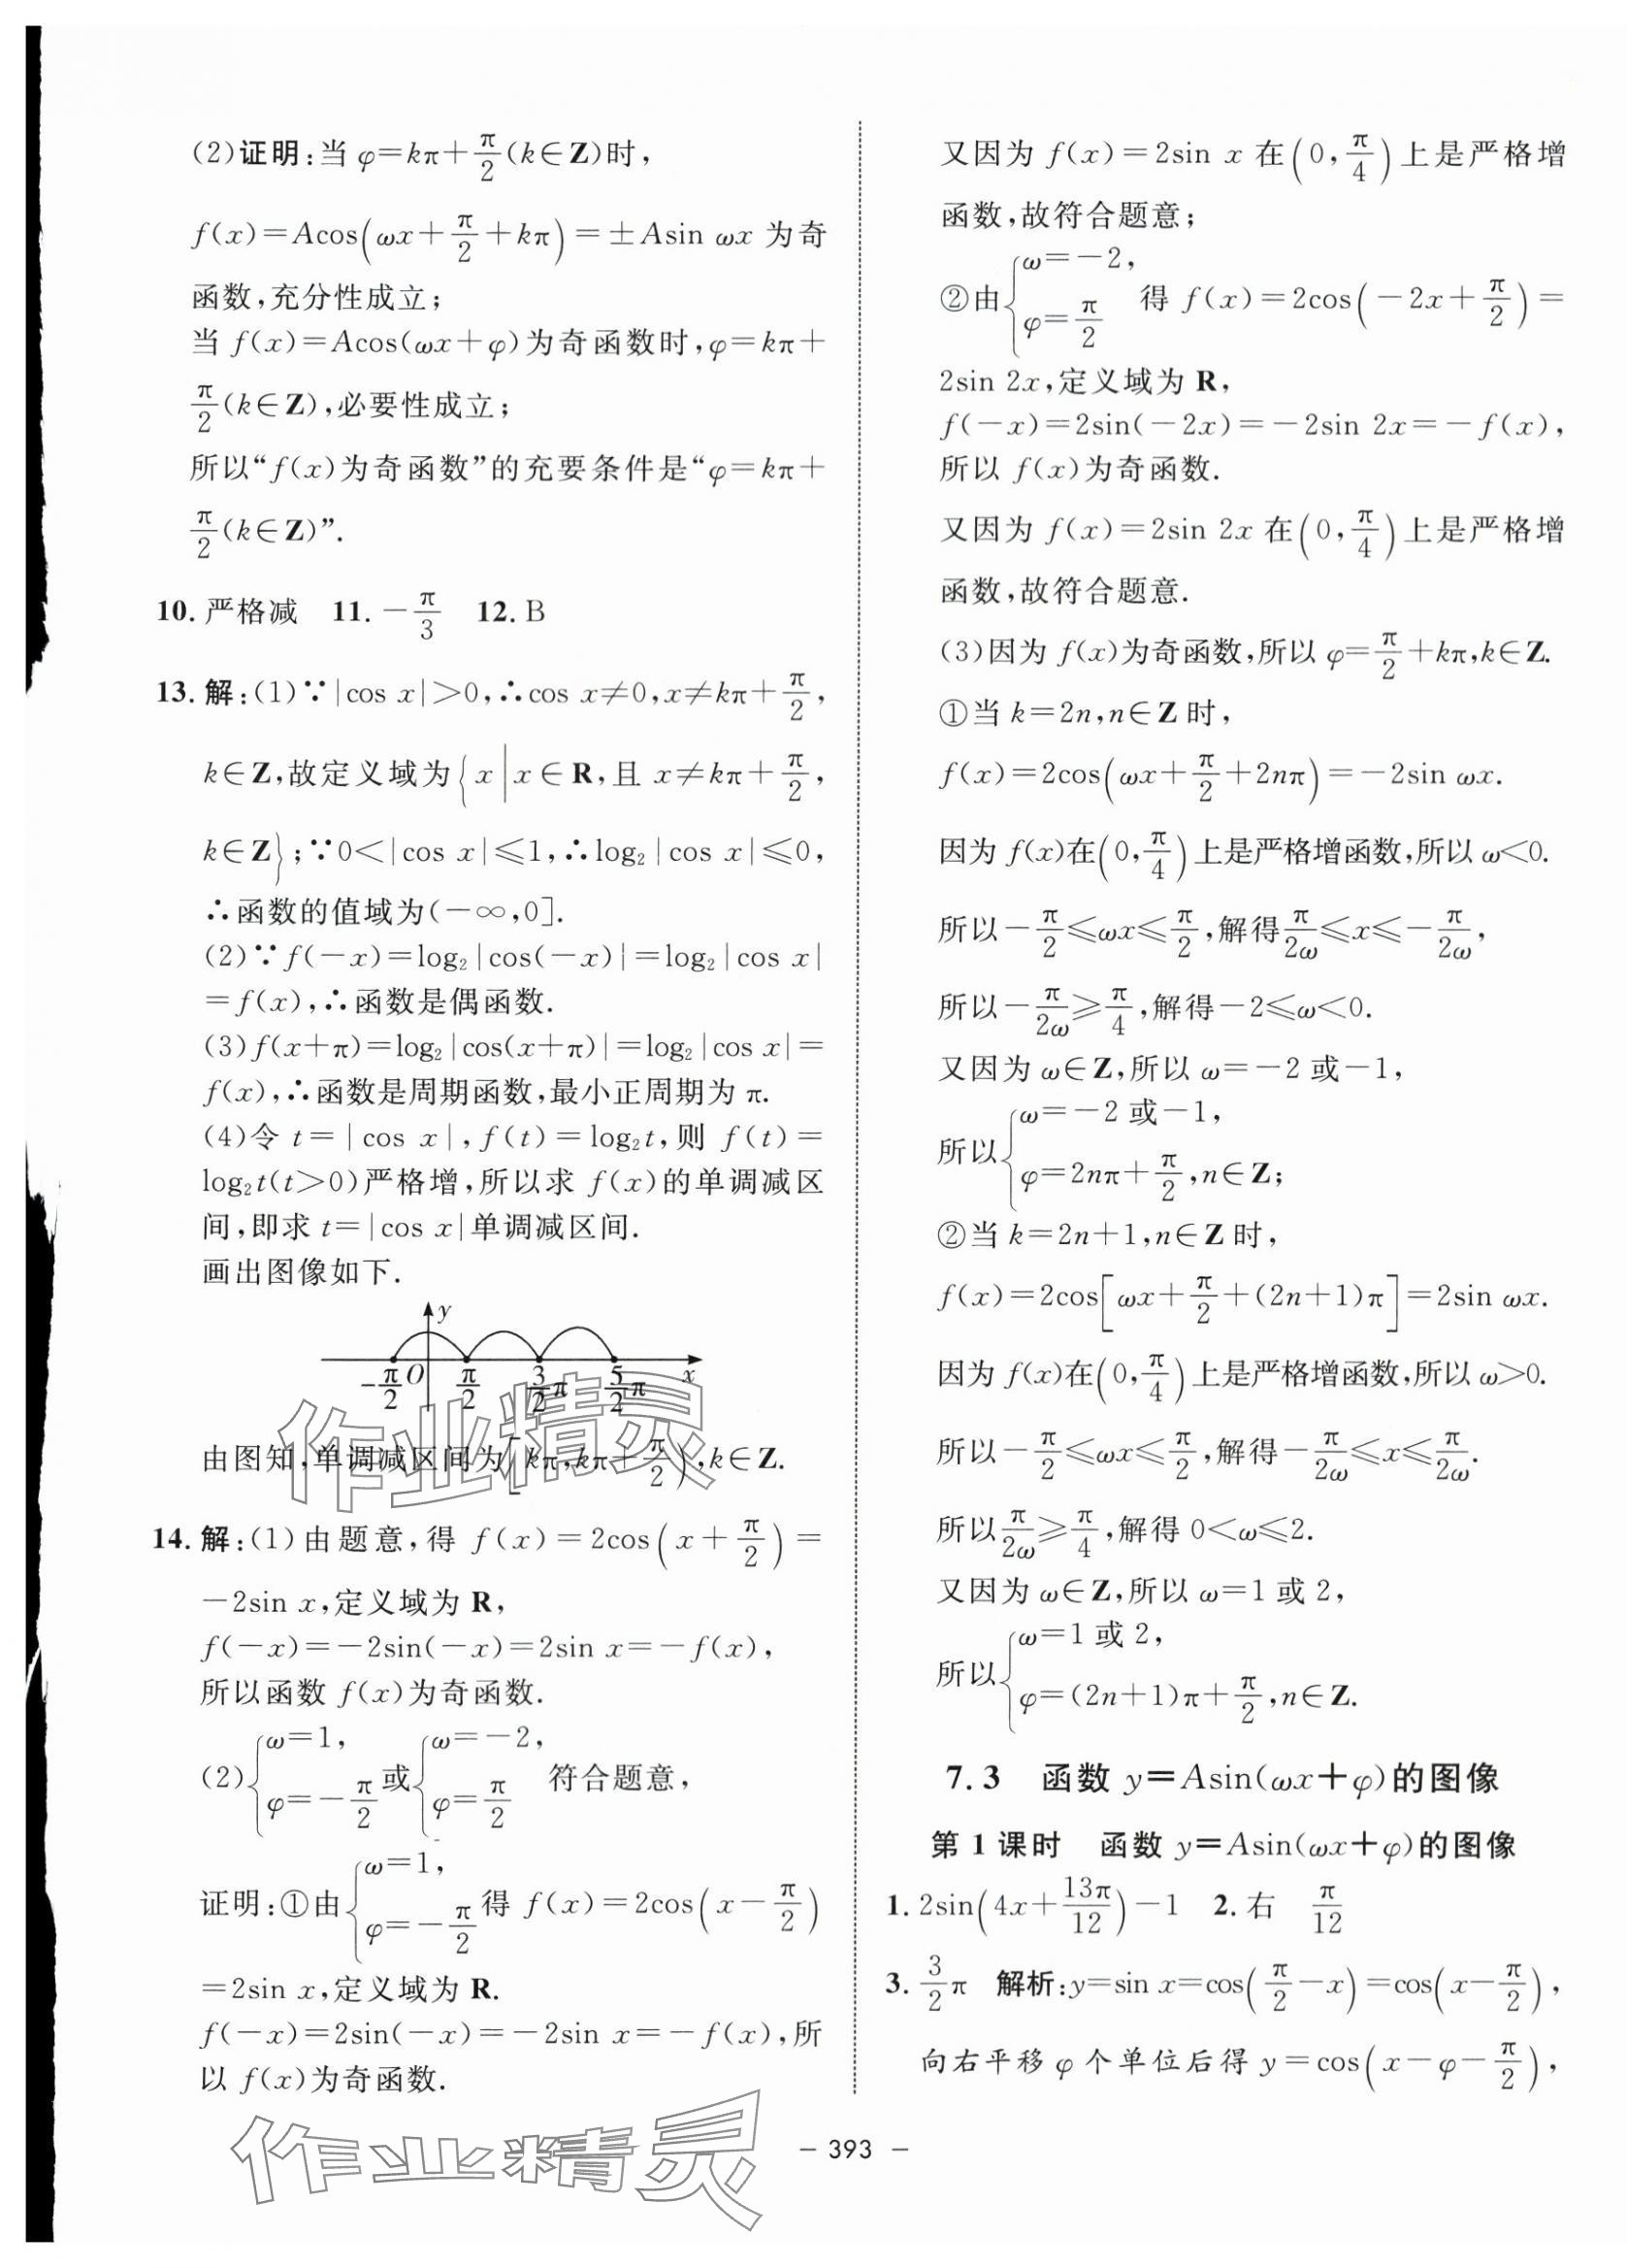 (2)证明:当 φ=kπ+π/2(k∈Z)时,
f(x)=Acos(ωx+π/2+kπ)=±Asin ωx 为奇
函数,充分性成立;
当 f(x)=Acos(ωx+φ)为奇函数时,φ=kπ+
π/2(k∈Z),必要性成立;
所以“f(x)为奇函数”的充要条件是“φ=kπ+
π/2(k∈Z)”.
10. 严格减 11. -π/3 12. B
13. 解:(1)∵|cos x|>0,∴cos x≠0,x≠kπ+π/2,
k∈Z,故定义域为{x|x∈R,且 x≠kπ+π/2,
k∈Z};∵0<|cos x|≤1,∴log₂|cos x|≤0,
∴函数的值域为(-∞,0].
(2)∵f(-x)=log₂|cos(-x)|=log₂|cos x|
=f(x),∴函数是偶函数.
(3)f(x+π)=log₂|cos(x+π)|=log₂|cos x|=
f(x),∴函数是周期函数,最小正周期为 π.
(4)令 t=|cos x|,f(t)=log₂t,则 f(t)=
log₂t(t>0)严格增,所以求 f(x)的单调减区
间,即求 t=|cos x|单调减区间.
画出图像如下.
y
-π/2 O π/2 3/2π 5/2π x
由图知,单调减区间为[kπ,kπ+π/2),k∈Z.
14. 解:(1)由题意,得 f(x)=2cos(x+π/2)=
-2sin x,定义域为 R,
f(-x)=-2sin(-x)=2sin x=-f(x),
所以函数 f(x)为奇函数.
(2){ω=1, φ=-π/2 或{ω=-2, φ=π/2 符合题意,
证明:①由{ω=1, φ=-π/2 得 f(x)=2cos(x-π/2)
=2sin x,定义域为 R.
f(-x)=2sin(-x)=-2sin x=-f(x),所
以 f(x)为奇函数.
又因为 f(x)=2sin x 在(0,π/4)上是严格增
函数,故符合题意;
②由{ω=-2, φ=π/2 得 f(x)=2cos(-2x+π/2)=
2sin 2x,定义域为 R,
f(-x)=2sin(-2x)=-2sin 2x=-f(x),
所以 f(x)为奇函数.
又因为 f(x)=2sin 2x 在(0,π/4)上是严格增
函数,故符合题意.
(3)因为 f(x)为奇函数,所以 φ=π/2+kπ,k∈Z.
①当 k=2n,n∈Z 时,
f(x)=2cos(ωx+π/2+2nπ)=-2sin ωx.
因为 f(x)在(0,π/4)上是严格增函数,所以 ω<0.
所以-π/2≤ωx≤π/2,解得π/2ω≤x≤-π/2ω,
所以-π/2ω≥π/4,解得-2≤ω<0.
又因为 ω∈Z,所以 ω=-2 或-1,
所以{ω=-2 或-1, φ=2nπ+π/2,n∈Z;
②当 k=2n+1,n∈Z 时,
f(x)=2cos[ωx+π/2+(2n+1)π]=2sin ωx.
因为 f(x)在(0,π/4)上是严格增函数,所以 ω>0.
所以-π/2≤ωx≤π/2,解得-π/2ω≤x≤π/2ω.
所以π/2ω≥π/4,解得 0<ω≤2.
又因为 ω∈Z,所以 ω=1 或 2,
所以{ω=1 或 2, φ=(2n+1)π+π/2,n∈Z.
7.3 函数 y=Asin(ωx+φ)的图像
第 1 课时 函数 y=Asin(ωx+φ)的图像
1. 2sin(4x+13π/12)-1 2. 右 π/12
3. 3/2π 解析:y=sin x=cos(π/2-x)=cos(x-π/2),
向右平移 φ 个单位后得 y=cos(x-φ-π/2),
作业精灵
作业精灵
- 393 -